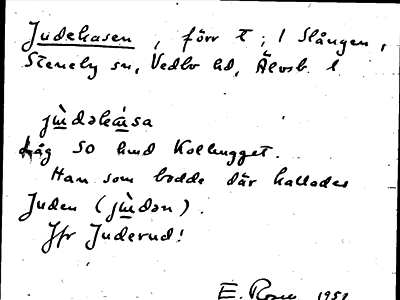 Judekasen, förr t; i Slången,
Steneby sn, Vedbo hd, Älvsb. l
jùdəkása
Låg SO Kolhugget.
Han som bodde där kallades
Juden (jùdən).
Jfr Juderud!
E. Rosen 1951